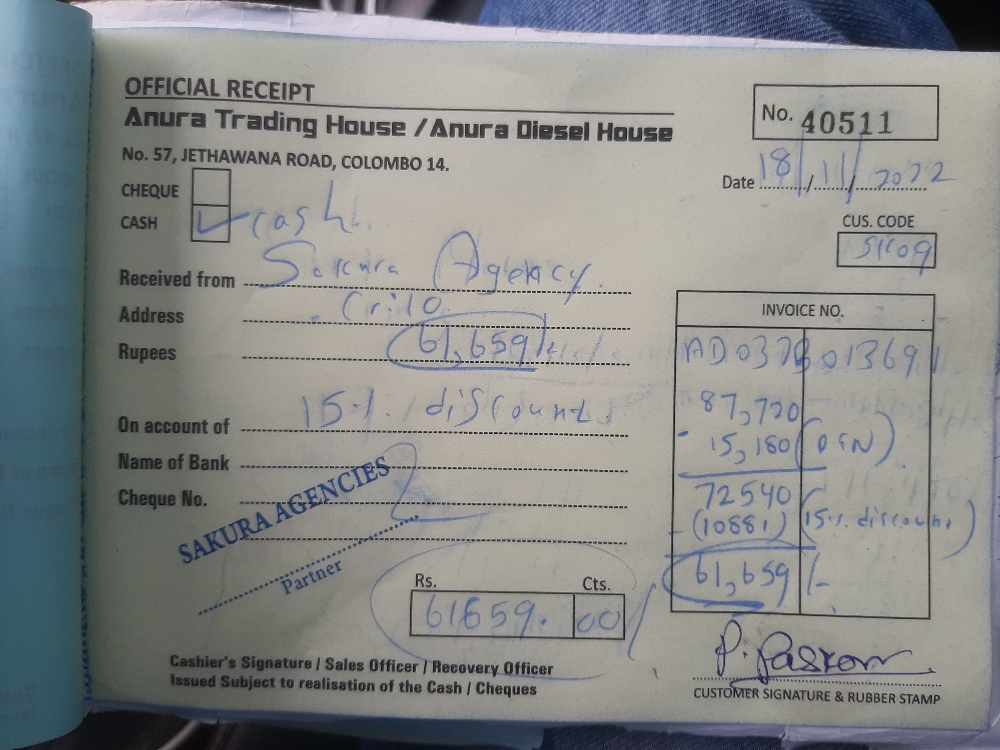 OFFICIAL RECEIPT
Anura Trading House / Anura Diesel House
No. 57, JETHAWANA ROAD, COLOMBO 14.
No. 40511
Date 18/11/2022
CHEQUE
CASH ✓ cash
CUS. CODE
SK09
Received from Sakura Agency
Address
Rupees 61,659/-
On account of 15% discount
Name of Bank
Cheque No.
SAKURA AGENCIES
Partner
INVOICE NO.
AD037B013691
87,720
- 15,180
72540
- (10881) (15% discount)
61,659/-
Rs. Cts.
61659. 00/
Cashier's Signature / Sales Officer / Recovery Officer
Issued Subject to realisation of the Cash / Cheques
CUSTOMER SIGNATURE & RUBBER STAMP